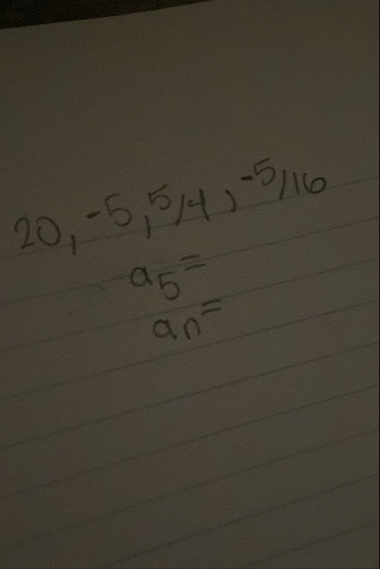 20, -5, 5/4, -5/16
a5=
an=